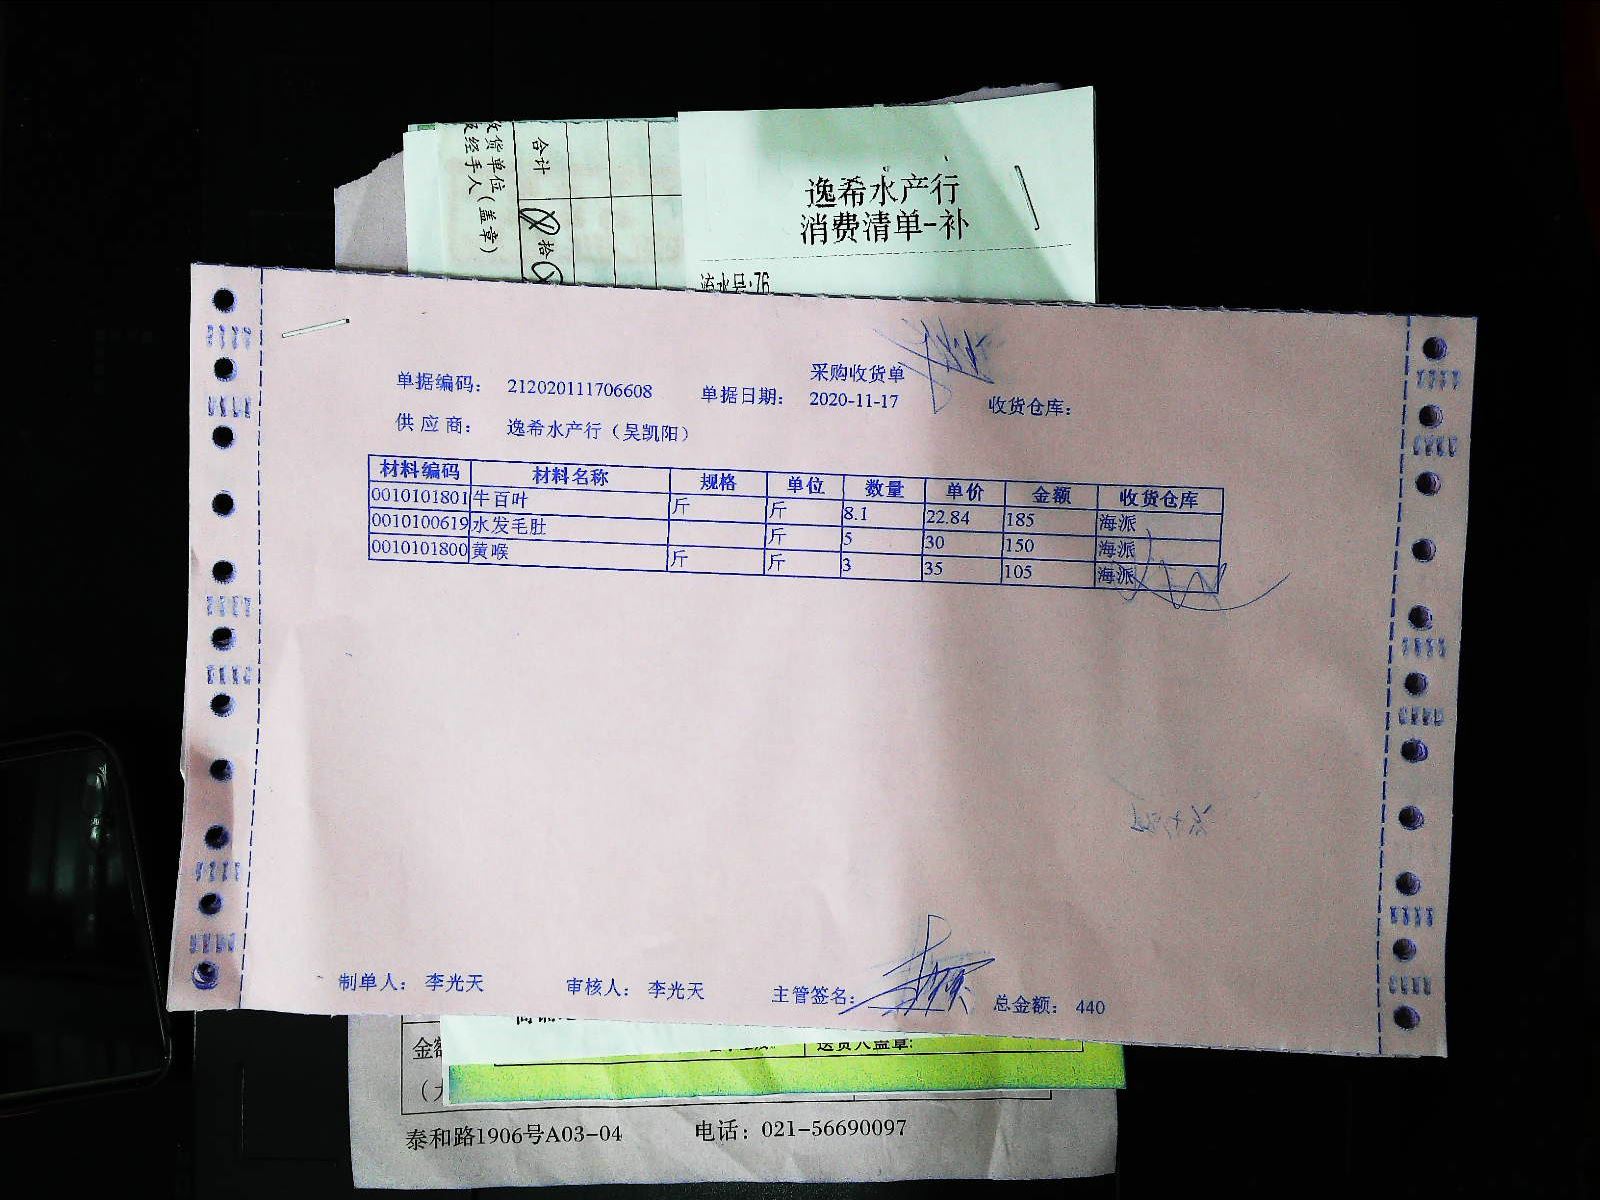 收货单位(盖章)
及经手人
合计
拾
逸希水产行
消费清单-补
流水号:76
采购收货单
单据编码： 212020111706608 单据日期： 2020-11-17 收货仓库：
供应商： 逸希水产行（吴凯阳）
材料编码 材料名称 规格 单位 数量 单价 金额 收货仓库
0010101801 牛百叶 斤 斤 8.1 22.84 185 海派
0010100619 水发毛肚 斤 5 30 150 海派
0010101800 黄喉 斤 斤 3 35 105 海派
制单人： 李光天 审核人： 李光天 主管签名： 总金额： 440
送货人盖章:
金额
泰和路1906号A03-04 电话：021-56690097